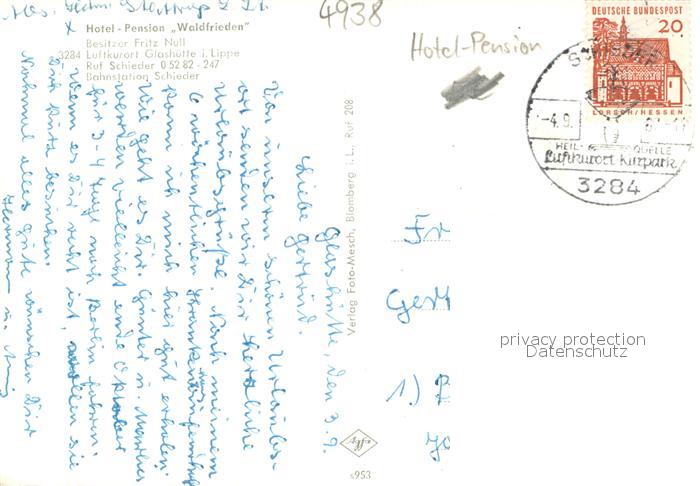 4938
Hotel-Pension
Abs. Techn.
Hotel - Pension „Waldfrieden"
Besitzer Fritz Null
3284 Luftkurort Glashütte i. Lippe
Ruf Schieder 0 52 82 - 247
Bahnstation Schieder
DEUTSCHE BUNDESPOST
20
LORSCH/HESSEN
SCHIEDER
-4.9.
HEIL- QUELLE
Luftkurort Kurpark
3284
Glashütte, den 3.9.
Liebe Gertrud.
Von unserem schönen Urlaubs-
ort senden wir Dir herzliche
Urlaubsgrüße. Nach meinem
6 wöchentlichen Krankenhausaufenthalt
kann ich mich hier gut erholen.
Wie geht es Dir. Günter u. Marlies
werden vielleicht ende Oktober
für 3-4 Tage nach Berlin fahren.
Wenn es Dir recht ist, wollen sie
Dich bitte besuchen.
Nochmal alles gute wünschen Dir
Hermann u.
Verlag Foto-Mesch, Blomberg i. L., Ruf 208
Fr
Gert
1.)
s953
privacy protection
Datenschutz